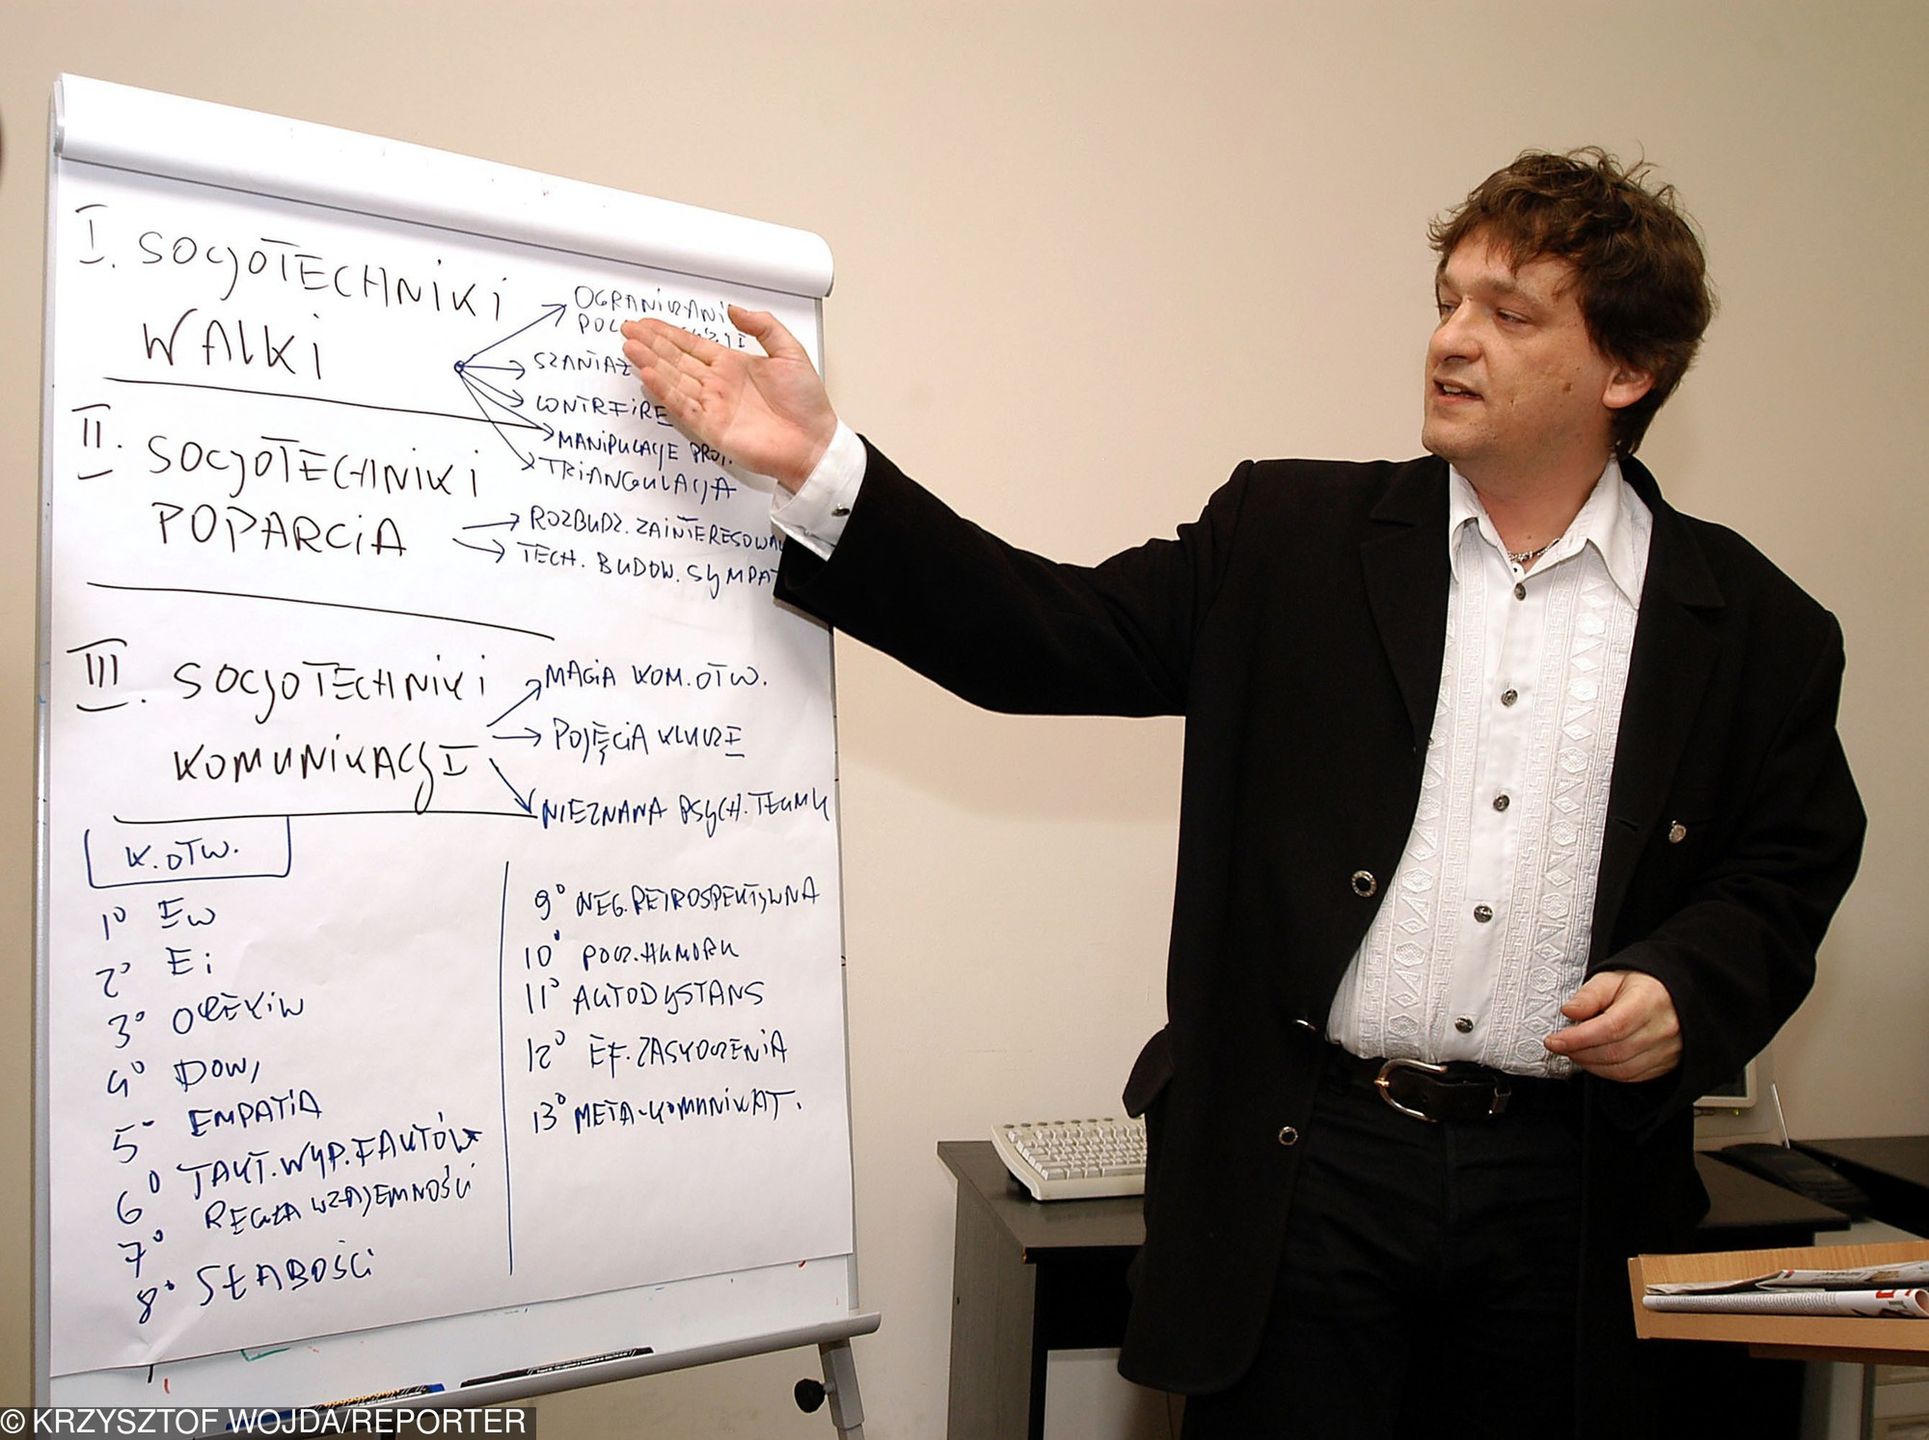 I. SOCJOTECHNIKI
WALKI
SZANTAŻ
KONTRFIRE
MANIPULACJE
TRIANGULACJA
II. SOCJOTECHNIKI
POPARCIA
ROZBUDZ. ZAINTERESOWA
TECH. BUDOW. SYMPAT
III. SOCJOTECHNIKI
KOMUNIKACJI
MAGIA KOM. OTW.
POJĘCIA KLUCZE
NIEZNANA PSYCH. TŁUMU
K. OTW.
1° EW
2° Ei
3°
4° DOW,
5° EMPATIA
6° TAKT. WYP. FAKTÓW
7° REGUŁA WZAJEMNOŚCI
8° SŁABOŚCI
9° NEG. RETROSPEKTYWNA
10° POCZ. HUMORU
11° AUTODYSTANS
12° EF. ZASKOCZENIA
13° META-KOMUNIKAT.
© KRZYSZTOF WOJDA/REPORTER